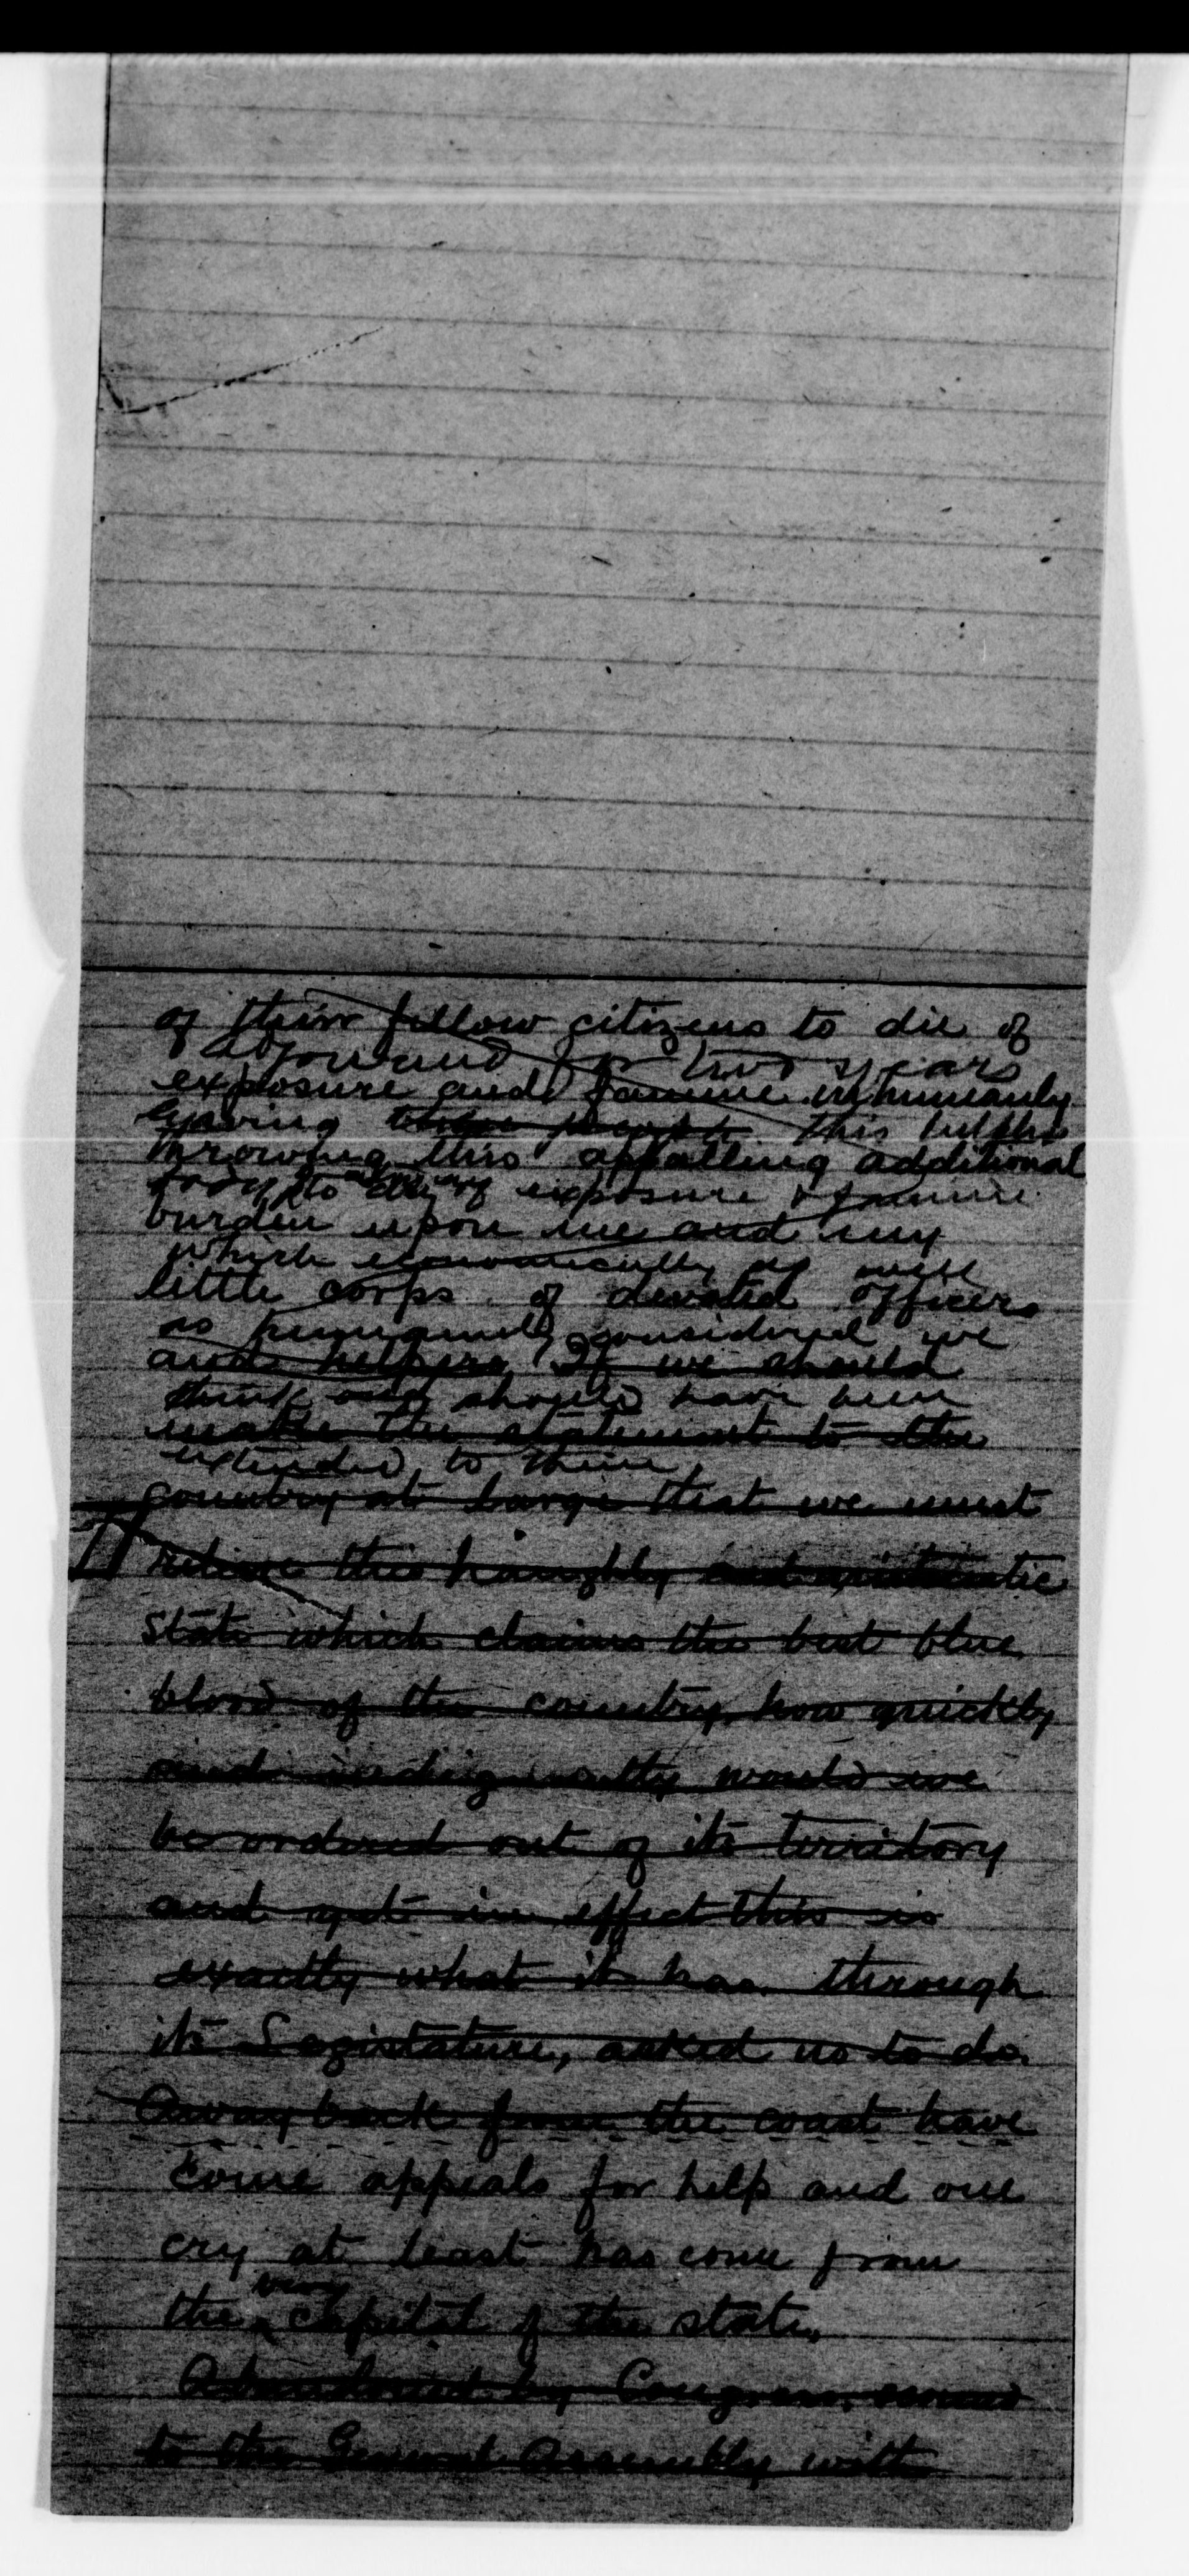 of their fellow citizens to die of
adjourned for two years
exposure and famine inhumanly
leaving this helpless
throwing this appalling additional
to die of exposure & famine
burden upon me and my
which economically as well
little corps of devoted officers
as considered we
and helpers. If we should
think and should have been
make the statement to the
extended to them.
country at large that we must
this haughty
State which claims the best blue
blood of the country, how quickly
and indignantly would we
be ordered out of its territory
and yet in effect this is
exactly what it has through
its Legistature, asked us to do.
Away back from the coast have
come appeals for help and one
cry at least has come from
very
the capital of the state.
Abandoned by Congress,
to the General Assembly with